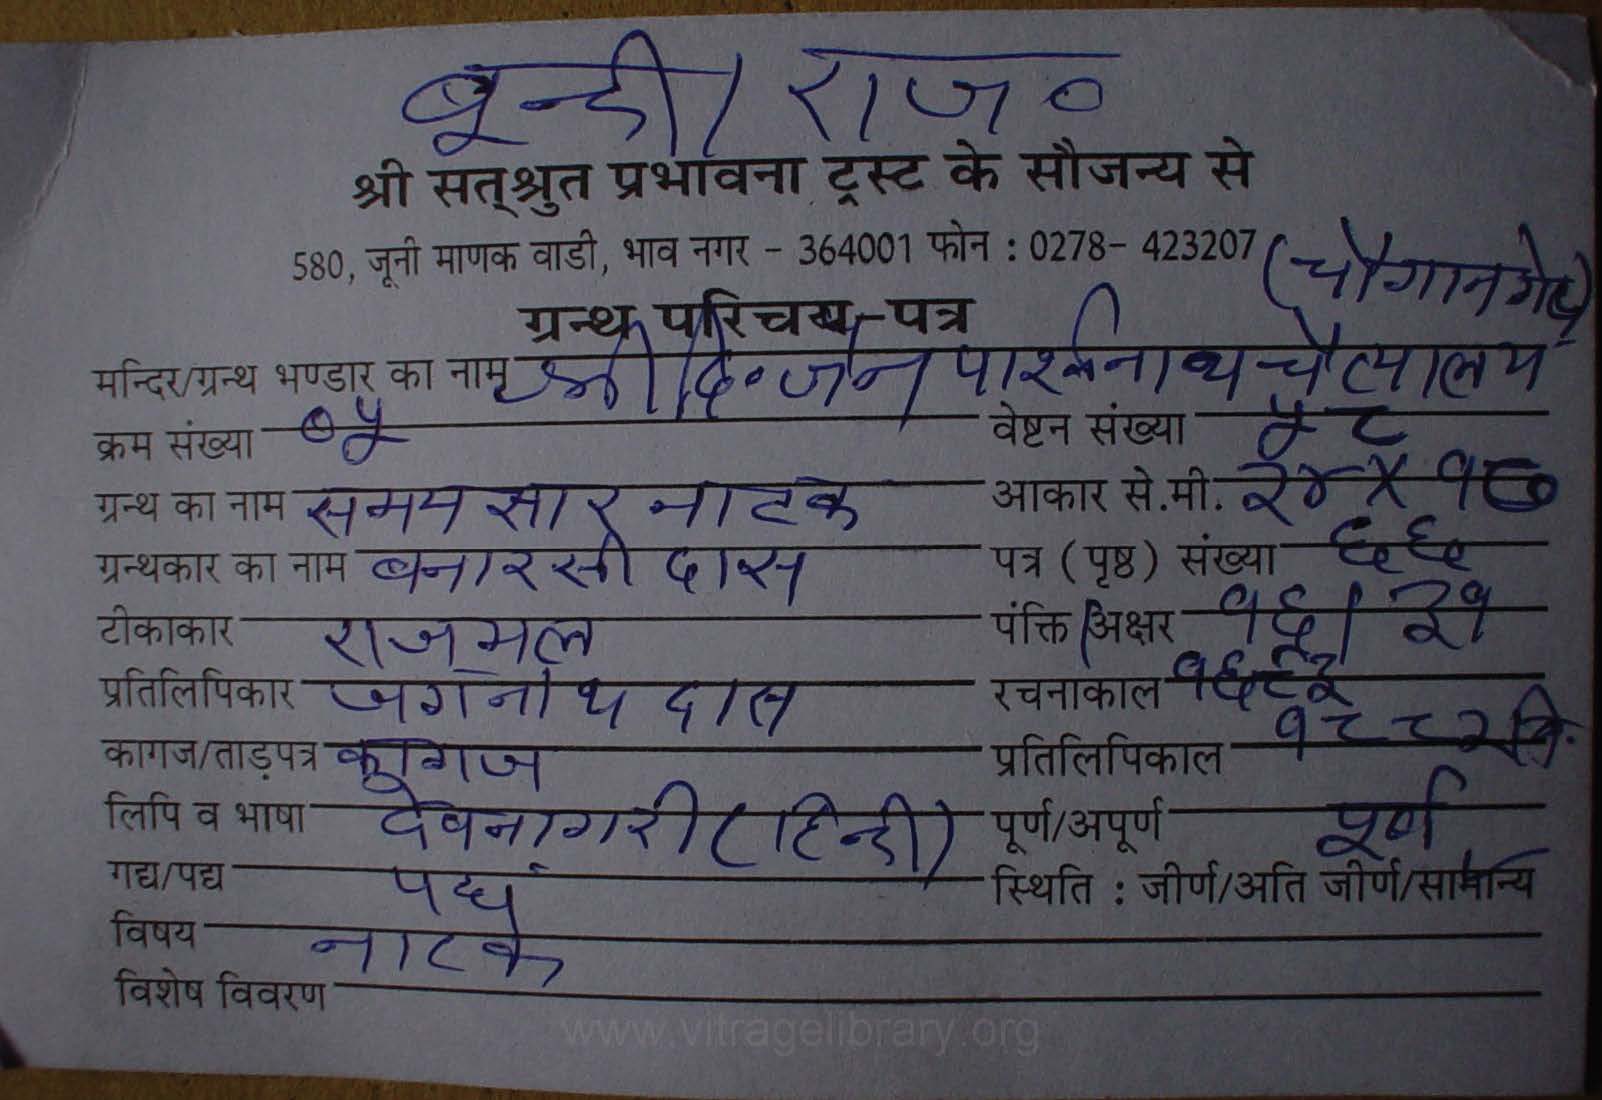 बून्दी/राज०
श्री सत्श्रुत प्रभावना ट्रस्ट के सौजन्य से
580, जूनी माणक वाडी, भाव नगर - 364001 फोन : 0278- 423207 (चौगान गेट)
ग्रन्थ परिचय-पत्र
मन्दिर/ग्रन्थ भण्डार का नाम श्री दि॰ जैन पार्श्वनाथ चैत्यालय
क्रम संख्या ०५ वेष्टन संख्या ५८
ग्रन्थ का नाम समयसार नाटक आकार से.मी. २४ X १७
ग्रन्थकार का नाम बनारसी दास पत्र (पृष्ठ) संख्या ६६
टीकाकार राजमल पंक्ति/अक्षर १६/३१
प्रतिलिपिकार जगनाथ दास रचनाकाल १६९३
कागज/ताड़पत्र कागज प्रतिलिपिकाल १८८२ वि.
लिपि व भाषा देवनागरी (हिन्दी) पूर्ण/अपूर्ण पूर्ण
गद्य/पद्य पद्य स्थिति : जीर्ण/अति जीर्ण/सामान्य
विषय नाटक
विशेष विवरण
www.vitragelibrary.org